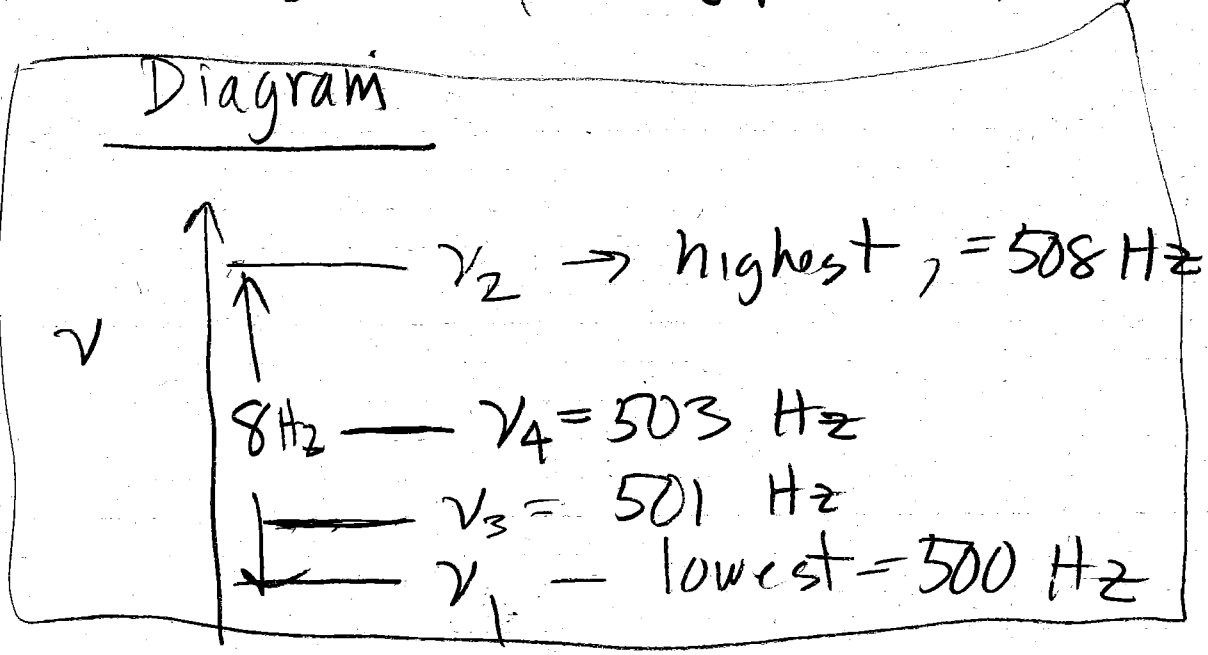 Diagram
ν₂ → highest, = 508 Hz
ν
8 Hz — ν₄ = 503 Hz
ν₃ = 501 Hz
ν₁ — lowest = 500 Hz